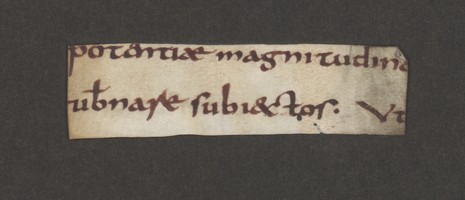 potentiae magnitudine
subiectos. Ut